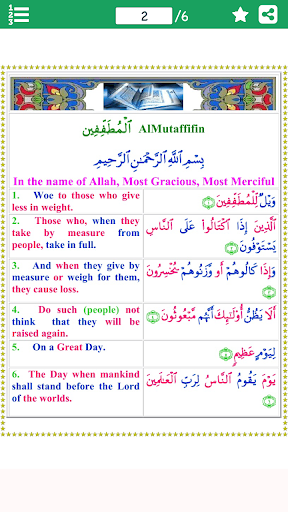 1
2
3
2 /6
ٱلْمُطَفِّفِين AlMutaffifin
بِسْمِ ٱللَّهِ ٱلرَّحْمَـٰنِ ٱلرَّحِيمِ
In the name of Allah, Most Gracious, Most Merciful
1. Woe to those who give
less in weight.
وَيْلٌ لِّلْمُطَفِّفِينَ ۝١
2. Those who, when they
take by measure from
people, take in full.
ٱلَّذِينَ إِذَا ٱكْتَالُوا۟ عَلَى ٱلنَّاسِ
يَسْتَوْفُونَ ۝٢
3. And when they give by
measure or weigh for them,
they cause loss.
وَإِذَا كَالُوهُمْ أَو وَّزَنُوهُمْ يُخْسِرُونَ
۝٣
4. Do such (people) not
think that they will be
raised again.
أَلَا يَظُنُّ أُو۟لَـٰٓئِكَ أَنَّهُم مَّبْعُوثُونَ ۝٤
5. On a Great Day.
لِيَوْمٍ عَظِيمٍ ۝٥
6. The Day when mankind
shall stand before the Lord
of the worlds.
يَوْمَ يَقُومُ ٱلنَّاسُ لِرَبِّ ٱلْعَـٰلَمِينَ
۝٦